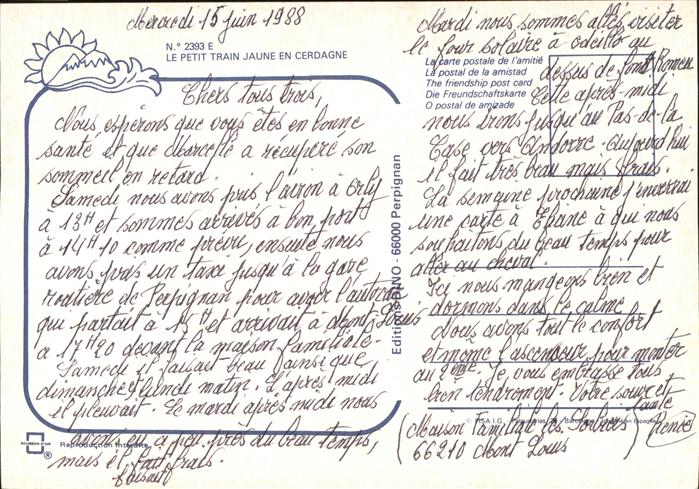 Mercredi 15 juin 1988
N.° 2393 E
LE PETIT TRAIN JAUNE EN CERDAGNE
Chers tous trois,
Nous espérons que vous êtes en bonne
santé et que a récupéré son
sommeil en retard.
Samedi nous avons pris l'avion à Orly
à 13H et sommes arrivés à bon port
à 14H10 comme prévu, ensuite nous
avons pris un taxi jusqu'à la gare
routière de Perpignan pour avoir l'autocar
qui partait à 15H et arrivait à Mont Louis
à 17H20 devant la maison familiale.
Samedi il faisait beau ainsi que
dimanche et lundi matin. L'après midi
il pleuvait. Le mardi après midi nous
avons eu à peu près du beau temps,
mais il fait frais.
faisait
BOURBON D'OR
Reproduction interdite
Editions DINO - 66000 Perpignan
Mardi nous sommes allés visiter
le four solaire à odeillo au
La carte postale de l'amitié
La postal de la amistad
The friendship post card
Die Freundschaftskarte
O postal de amizade
dessus de font Romeu
Cette après-midi
nous irons jusqu'au Pas-de-la
Case vers Andorre. Aujourd'hui
il fait très beau mais frais.
La semaine prochaine j'enverrai
une carte à à qui nous
souhaitons du beau temps pour
aller au cheval.
Ici nous mangeons bien et
dormons dans le calme
Nous avons tout le confort
et même l'ascenseur pour monter
au 2ème. Je vous embrasse tous
bien tendrement. Votre soeur et
tante
(Maison Familiale les
66210 Mont Louis